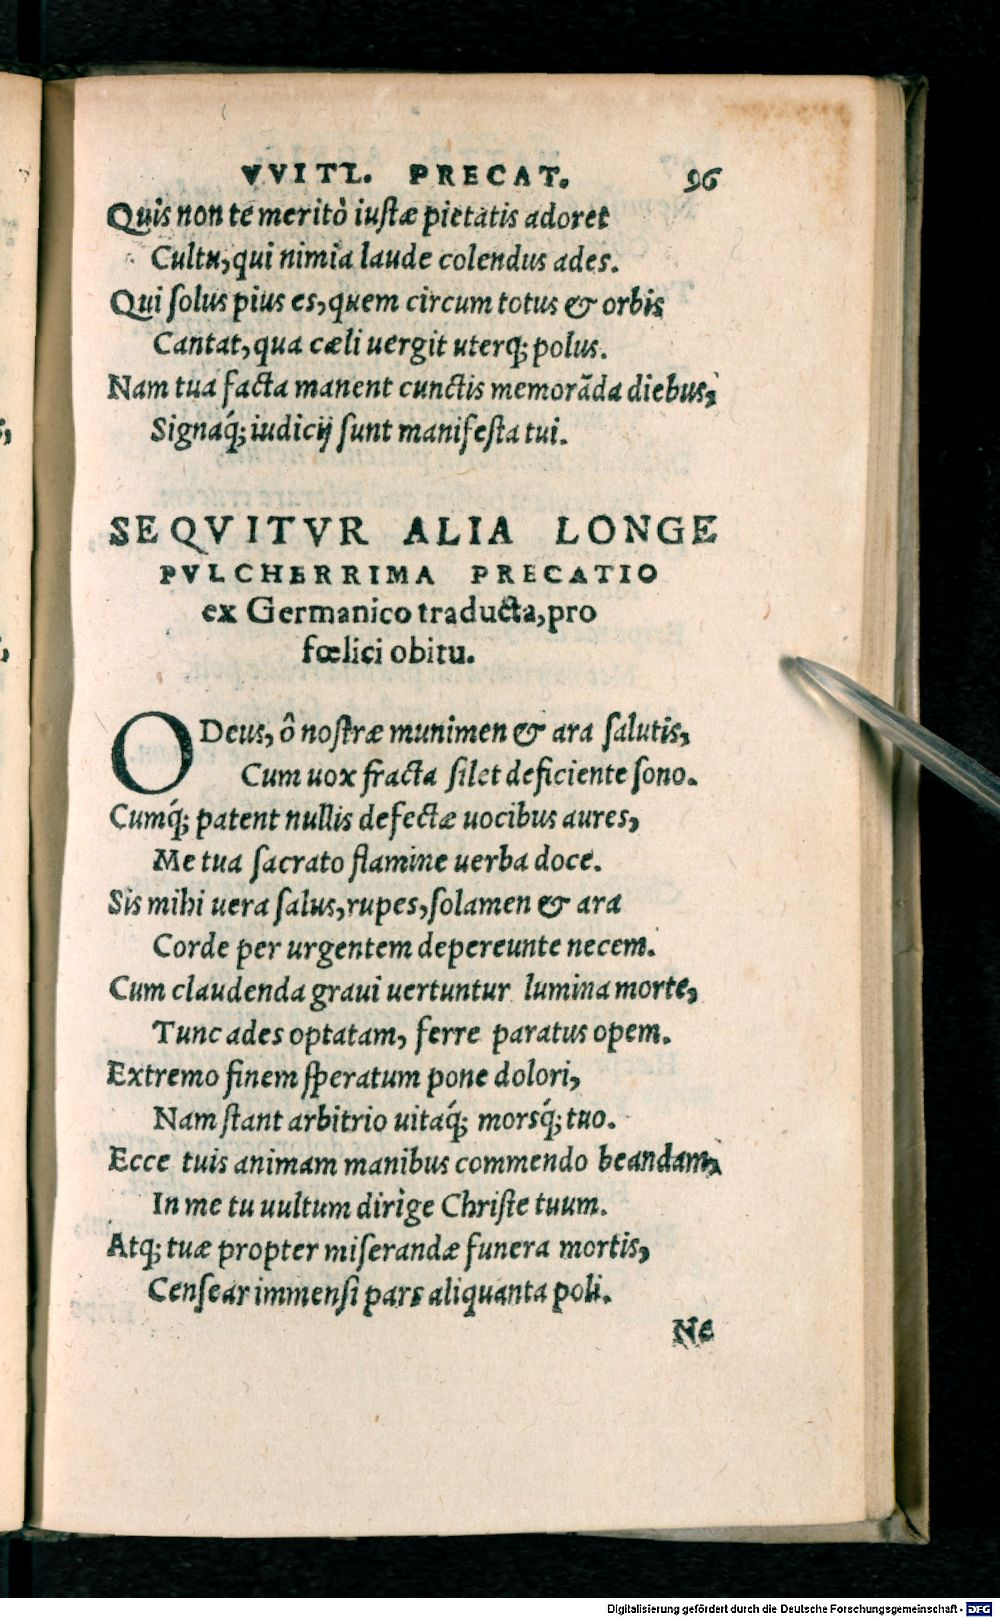 VVITI. PRECAT. 96
Quis non te meritò iustæ pietatis adoret
Cultu, qui nimia laude colendus ades.
Qui solus pius es, quem circum totus & orbis
Cantat, qua cæli uergit uterq; polus.
Nam tua facta manent cunctis memorãda diebus,
Signaq́; iudicij sunt manifesta tui.
SEQVITVR ALIA LONGE
PVLCHERRIMA PRECATIO
ex Germanico traducta, pro
fœlici obitu.
O Deus, ô nostræ munimen & ara salutis,
Cum uox fracta silet deficiente sono.
Cumq́; patent nullis defectæ uocibus aures,
Me tua sacrato flamine uerba doce.
Sis mihi uera salus, rupes, solamen & ara
Corde per urgentem depereunte necem.
Cum claudenda graui uertuntur lumina morte,
Tunc ades optatam, ferre paratus opem.
Extremo finem speratum pone dolori,
Nam stant arbitrio uitaq́; morsq́; tuo.
Ecce tuis animam manibus commendo beandam,
In me tu uultum dirige Christe tuum.
Atq; tuæ propter miserandæ funera mortis,
Censear immensi pars aliquanta poli.
Ne
Digitalisierung gefördert durch die Deutsche Forschungsgemeinschaft - DFG